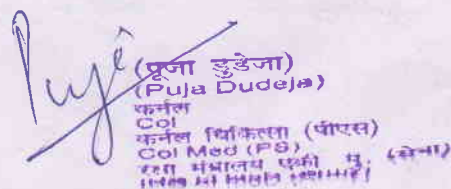 Puja
(पूजा डुडेजा)
(Puja Dudeja)
कर्नल
Col
कर्नल चिकित्सा (पीएस)
Col Med (PS)
रक्षा मंत्रालय एकी मु. (सेना)